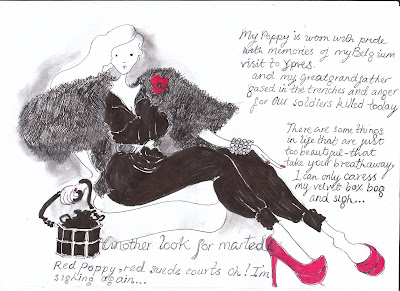 My Poppy is worn with pride
with memories of my Belgium
visit to Ypres.
and my Greatgrandfather
gased in the trenches and anger
for our soldiers killed today
There are some things
in life that are just
too beautiful-that
take your breathaway,
I can only caress
my velvet box bag
and sigh...
another look for marted
Red Poppy, red suede courts Oh! I'm
sighing again...